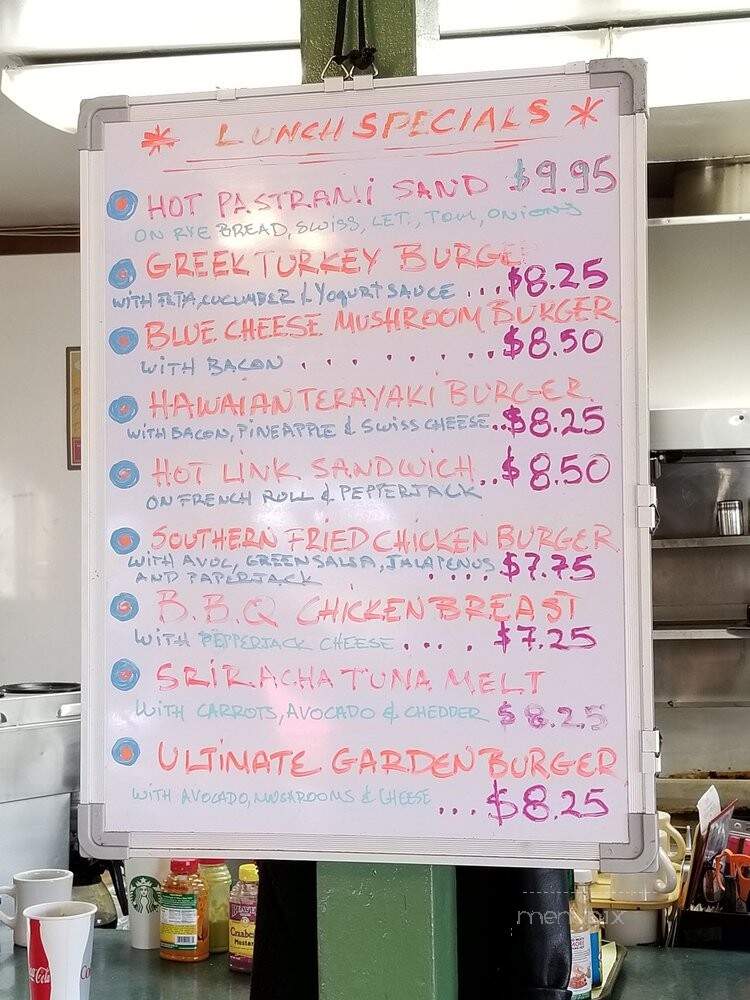 * LUNCH SPECIALS *
HOT PASTRAMI SAND $9.95
ON RYE BREAD, SWISS, LET., TOM, ONIONS
GREEK TURKEY BURGE
WITH FETA, CUCUMBER & YOGURT SAUCE ...$8.25
BLUE CHEESE MUSHROOM BURGER
WITH BACON . . . . . . ..$8.50
HAWAIAN TERAYAKI BURGER.
WITH BACON, PINEAPPLE & SWISS CHEESE..$8.25
HOT LINK SANDWICH..$8.50
ON FRENCH ROLL & PEPPERJACK
SOUTHERN FRIED CHICKEN BURGER
WITH AVOC, GREEN SALSA, JALAPENOS
AND PAPERJACK ....$7.75
B.B.Q CHICKEN BREAST
WITH PEPPERJACK CHEESE.... $7.25
SRIRACHA TUNA MELT
WITH CARROTS, AVOCADO & CHEDDER $8.25
ULTIMATE GARDEN BURGER
WITH AVOCADO, MUSHROOMS & CHEESE ...$8.25
STARBUCKS
Coca-Cola
menupix